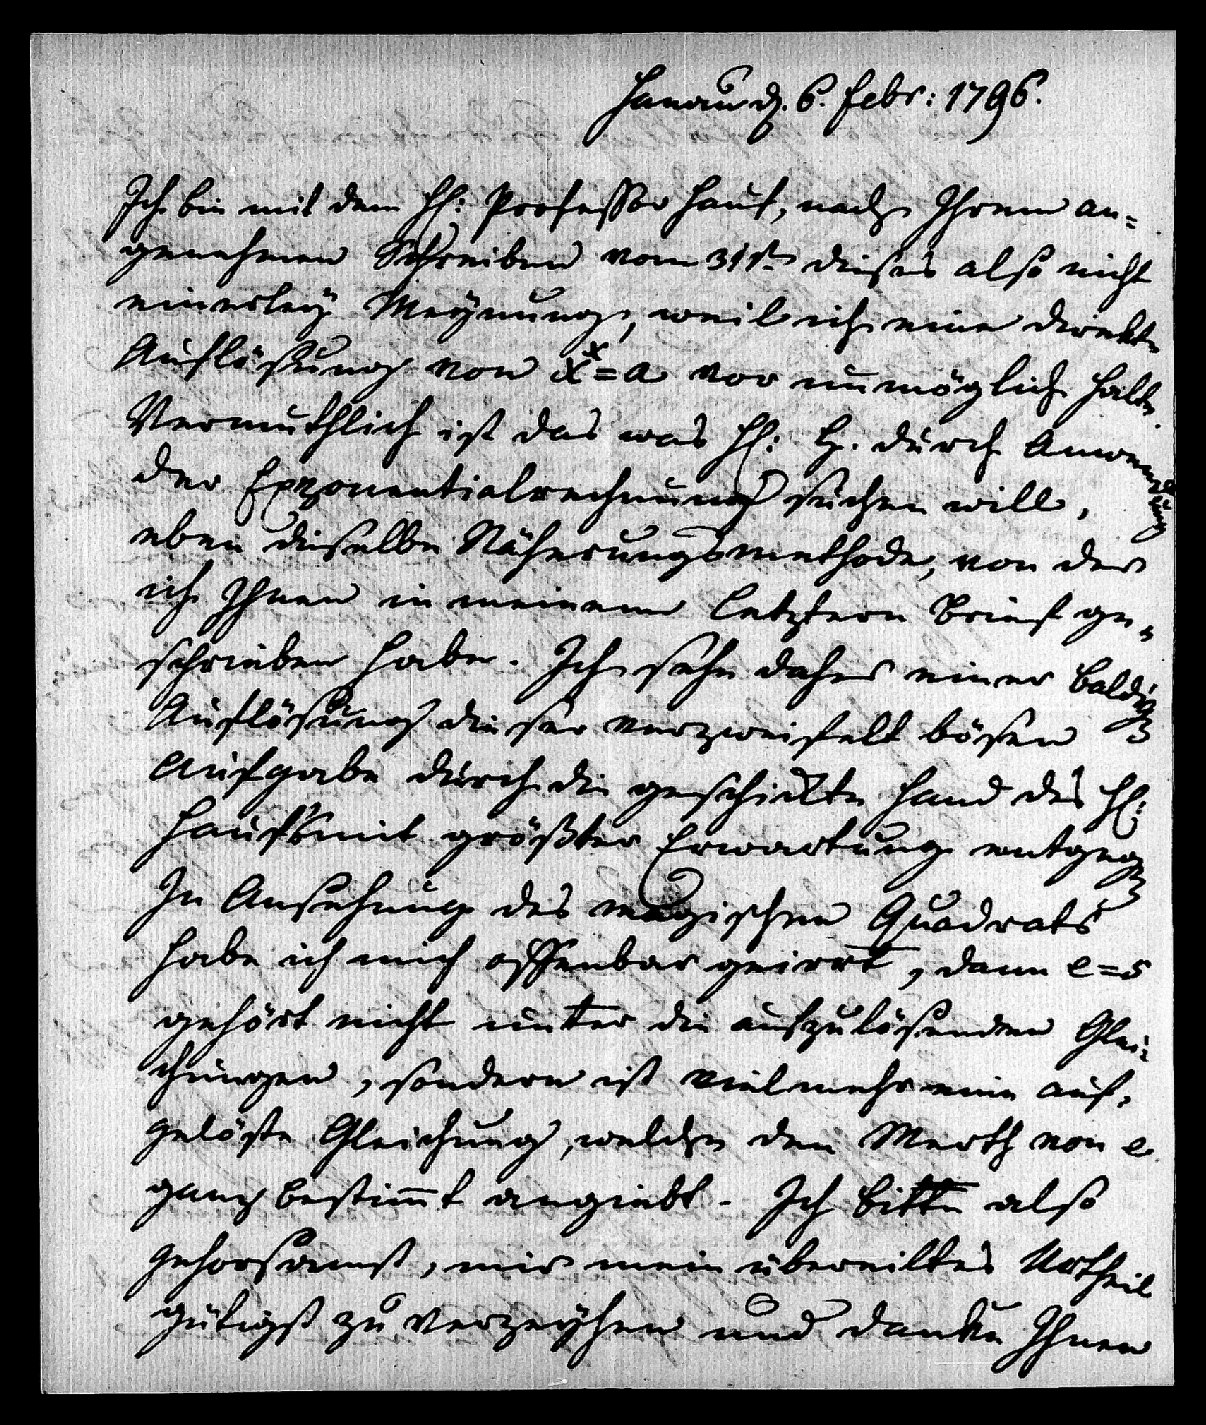 Hanau d. 6. Febr: 1796.
Ich bin mit dem H: Professor Hauf, nach Ihrem an=
genehmen Schreiben vom 31ste dieses also nicht
einerley Meynung, weil ich eine direkte
Auflößung von x^x = a vor unmöglich halte.
Vermuthlich ist das was H: H. durch Anwendung
der Exponentialrechnung suchen will,
eben dieselbe Näherungsmethode, von der
ich Ihnen in meinem letztern Brief ge=
schrieben habe. Ich sehe daher einer baldigen
Auflößung dieser verzweifelt bösen
Aufgabe durch die geschickte Hand des H:
Haufs mit größter Erwartung entgegen
In Ansehung des magischen Quadrats
habe ich mich offenbar geirrt, dann e=5
gehört nicht unter die aufzulößenden Glei=
chungen, sondern ist vielmehr eine auf=
gelößte Gleichung, welche den Werth von e
ganz bestim̅t angiebt. Ich bitte also
gehorsamst, mir mein übereiltes Urtheil
gütigst zu verzeyhen und danke Ihnen